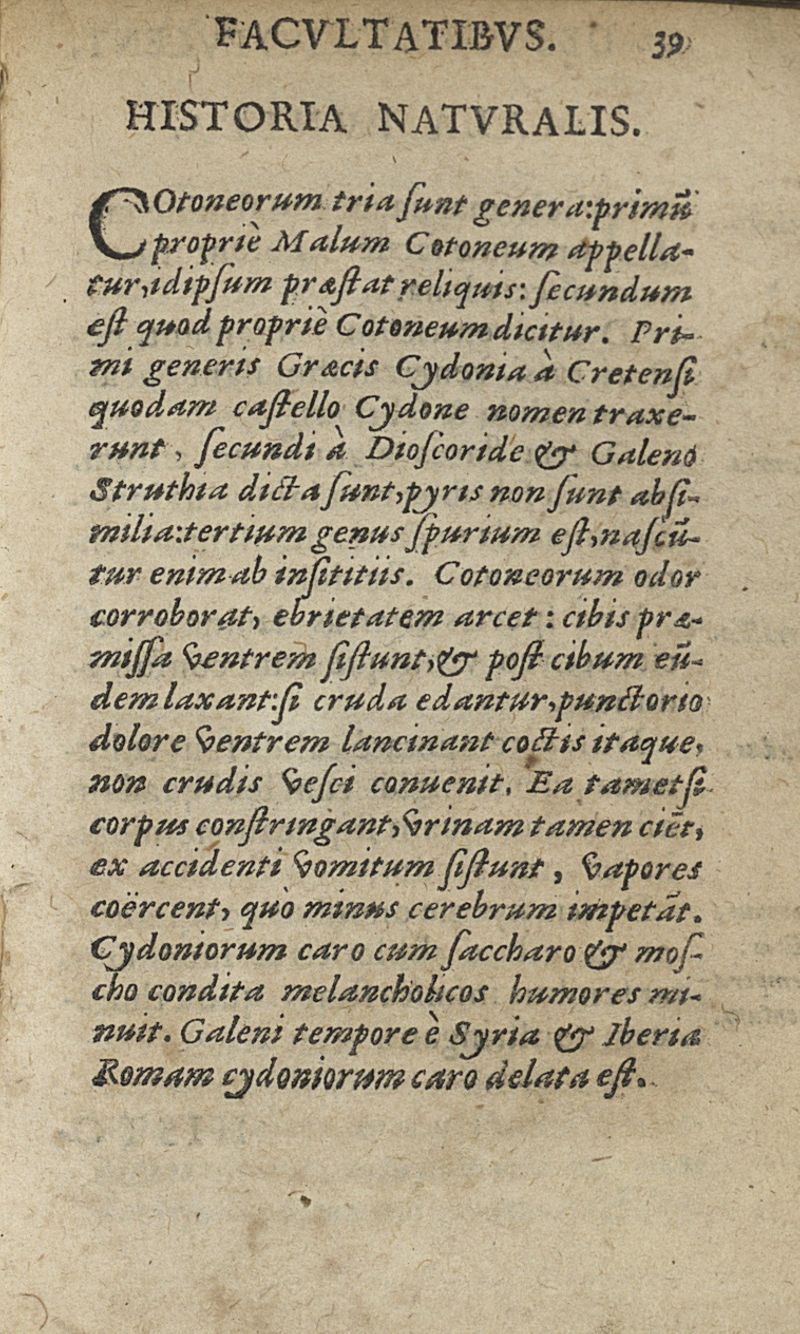 FACVLTATIBVS. 39
HISTORIA NATVRALIS.
COtoneorum tria ſunt genera:primũ
propriè Malum Cotoneum appella-
tur,idipſum præſtat reliquis: ſecundum
eſt quod propriè Cotoneum dicitur. Pri-
mi generis Græcis Cydonia à Cretenſi
quodam caſtello Cydone nomen traxe-
runt, ſecundi à Dioſcoride & Galeno
Struthia dicta ſunt,pyris non ſunt abſi-
milia:tertium genus ſpurium eſt,naſcũ-
tur enim ab inſititiis. Cotoneorum odor
corroborat, ebrietatem arcet : cibis præ-
miſſa ventrem ſiſtunt,& poſt cibum eũ-
dem laxant:ſi cruda edantur,punctorio
dolore ventrem lancinant coctis itaque,
non crudis veſci conuenit. Ea tametſi
corpus conſtringant,vrinam tamen ciẽt,
ex accidenti vomitum ſiſtunt , vapores
coërcent, quò minus cerebrum impetãt.
Cydoniorum caro cum ſaccharo & moſ-
cho condita melancholicos humores mi-
nuit. Galeni tempore è Syria & Iberia
Romam cydoniorum caro delata eſt.